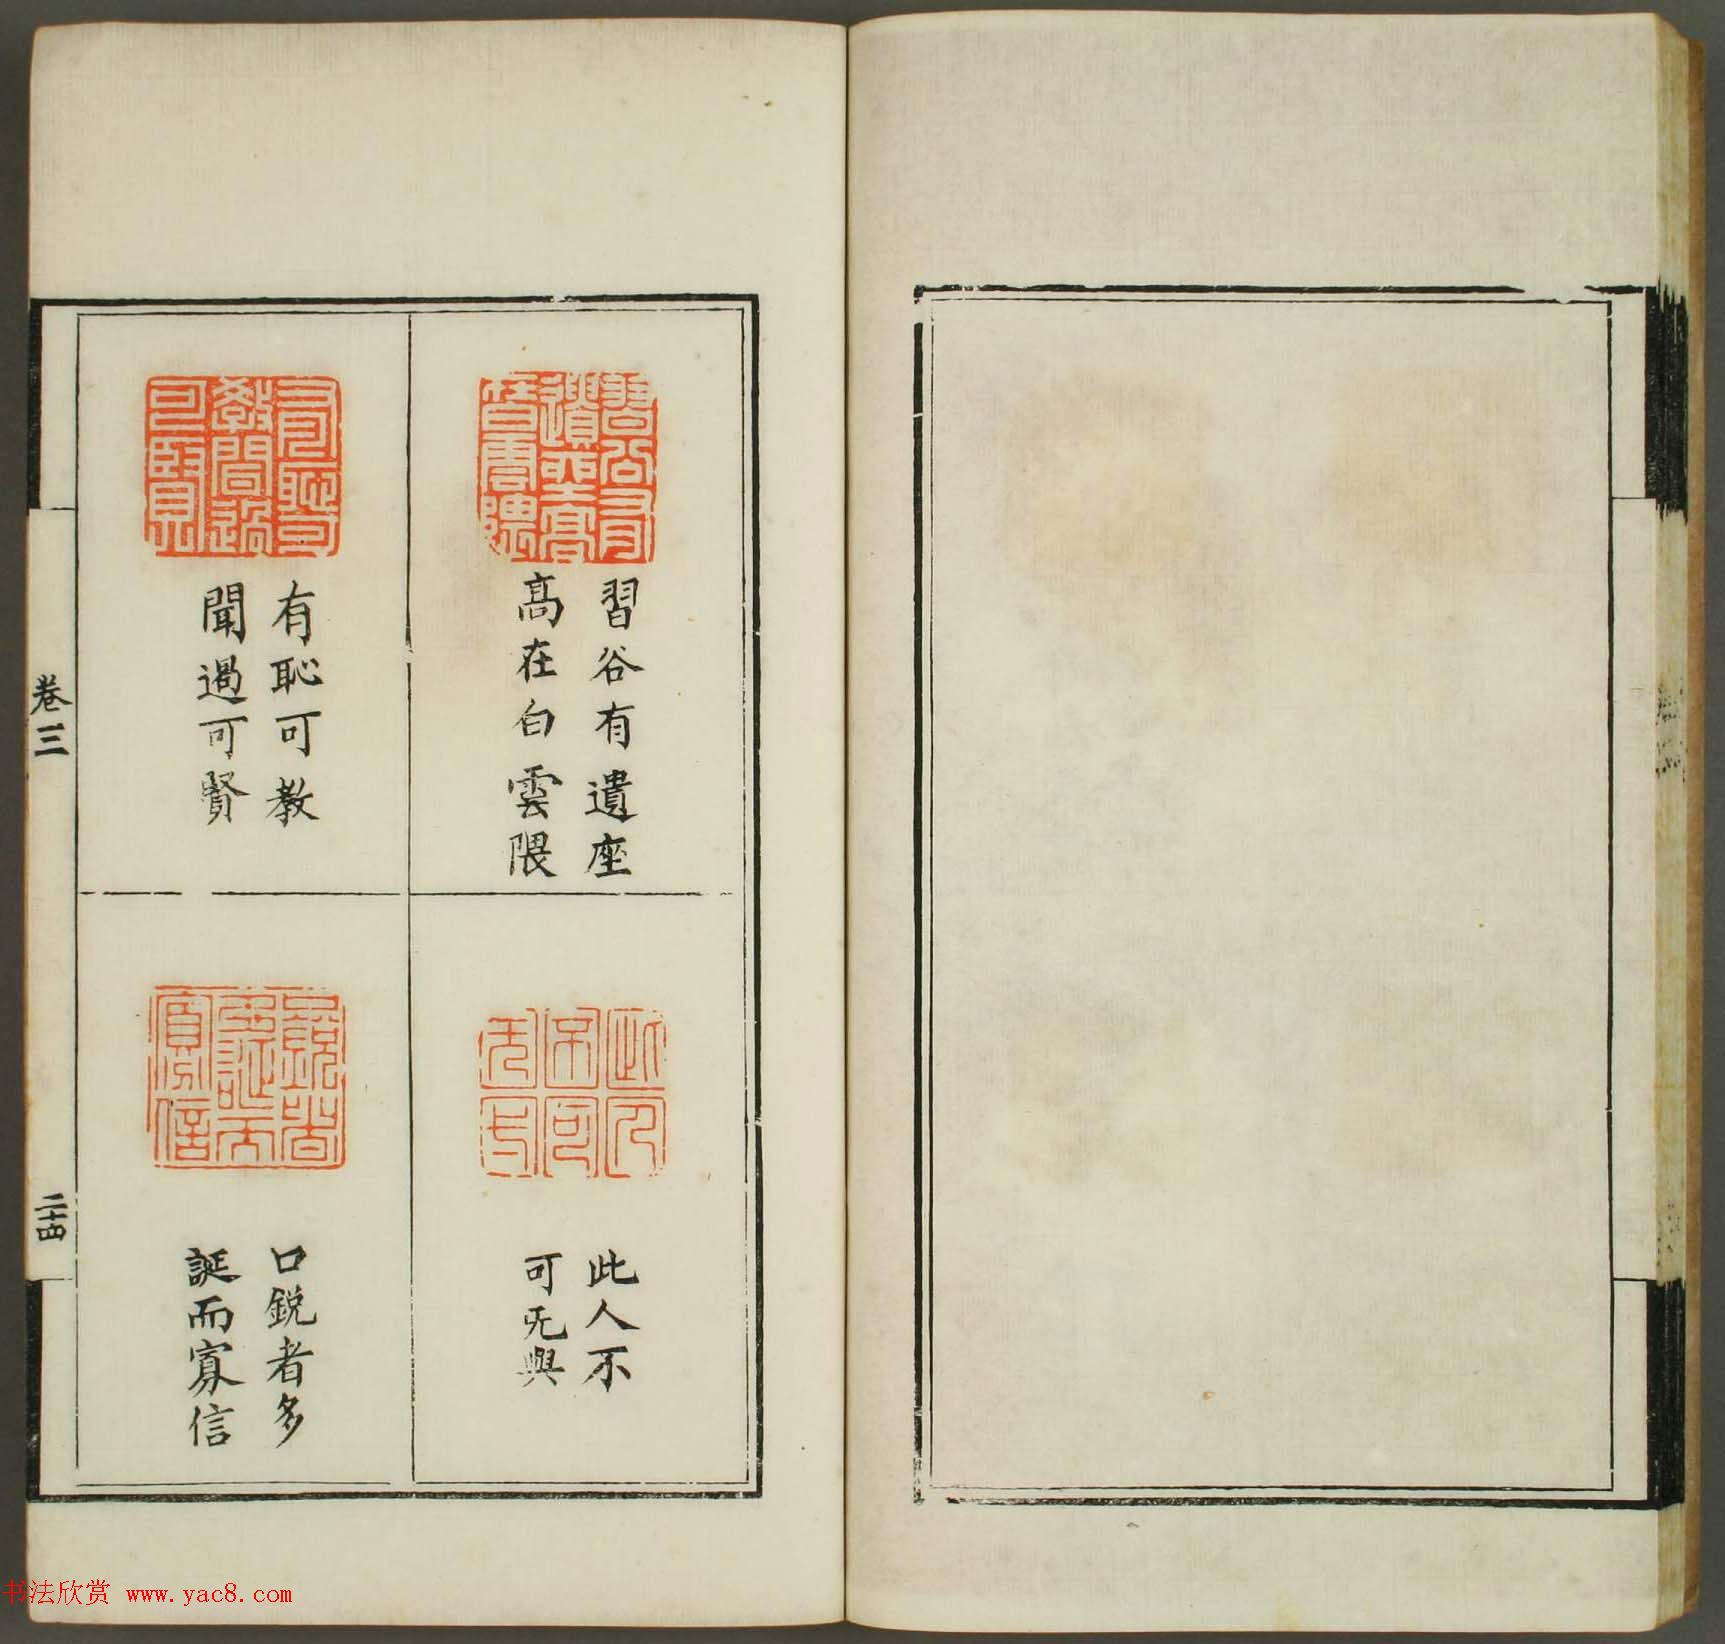 習谷有遺座
高在白雲隈
此人不
可旡與
有恥可教
聞過可賢
口銳者多
誕而寡信
卷三
二十四
书法欣赏 www.yac8.com